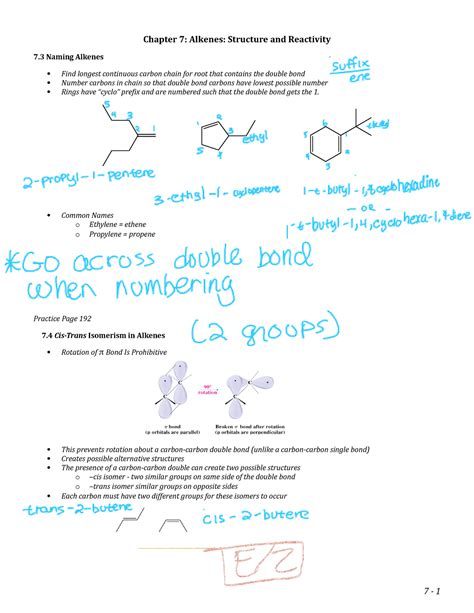 Chapter 7: Alkenes: Structure and Reactivity
7.3 Naming Alkenes
suffix
ene
• Find longest continuous carbon chain for root that contains the double bond
• Number carbons in chain so that double bond carbons have lowest possible number
• Rings have "cyclo" prefix and are numbered such that the double bond gets the 1.
5
4 3
2 1
2-propyl-1-pentene
1
2
3
ethyl
4
5
3-ethyl-1-cyclopentene
t-butyl
6
1
5
2
4
1-t-butyl-1,4cyclohexadine
— or —
1-t-butyl-1,4,cyclohexa-1,4-diene
• Common Names
o Ethylene = ethene
o Propylene = propene
*Go across double bond
when numbering
(2 groups)
Practice Page 192
7.4 Cis-Trans Isomerism in Alkenes
• Rotation of π Bond Is Prohibitive
C
C
90°
rotation
C
C
π bond
(p orbitals are parallel)
Broken π bond after rotation
(p orbitals are perpendicular)
• This prevents rotation about a carbon-carbon double bond (unlike a carbon-carbon single bond)
• Creates possible alternative structures
• The presence of a carbon-carbon double can create two possible structures
o –cis isomer - two similar groups on same side of the double bond
o –trans isomer similar groups on opposite sides
• Each carbon must have two different groups for these isomers to occur
trans-2-butene
cis-2-butene
E/Z
7 - 1